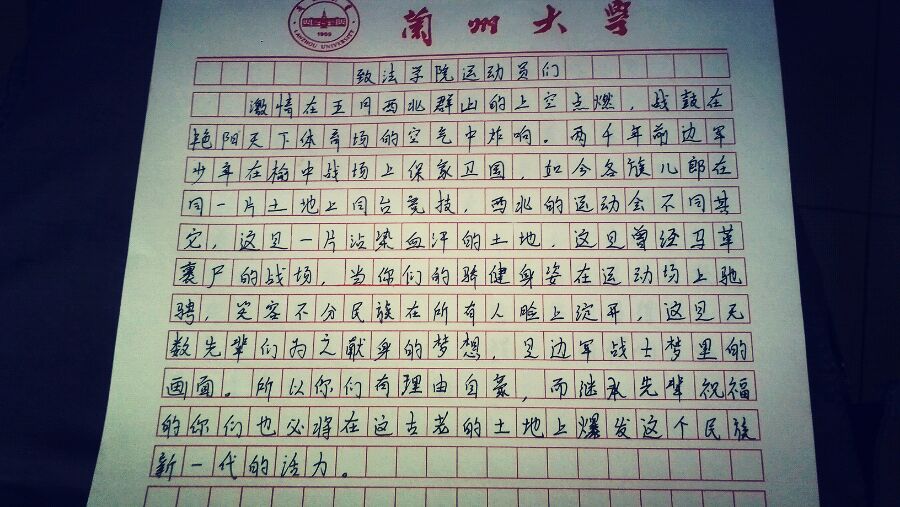 兰州大学
LANZHOU UNIVERSITY
1909
致法学院运动员们
激情在五月西北群山的上空点燃，战鼓在
艳阳天下体育场的空气中炸响。两千年前边军
少年在榆中战场上保家卫国，如今各族儿郎在
同一片土地上同台竞技，西北的运动会不同其
它，这是一片沾染血汗的土地，这是曾经马革
裹尸的战场，当你们的骄健身姿在运动场上驰
骋，笑容不分民族在所有人脸上绽开，这是无
数先辈们为之献身的梦想，是边军战士梦里的
画面。所以你们有理由自豪，而继承先辈祝福
的你们也必将在这古老的土地上爆发这个民族
新一代的活力。